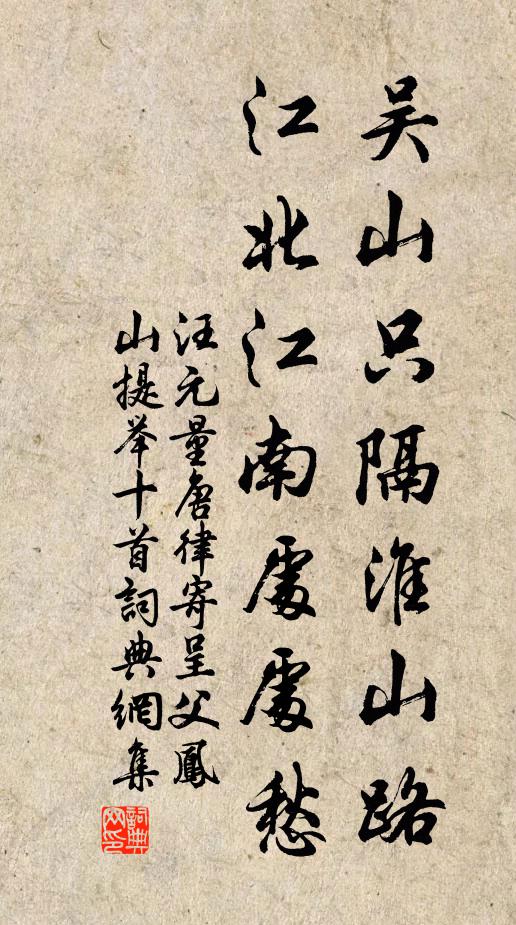 吴山只隔淮山路
江北江南處處愁
汪元量唐律寄呈父鳳
山提举十首詞典網集
詞典网印